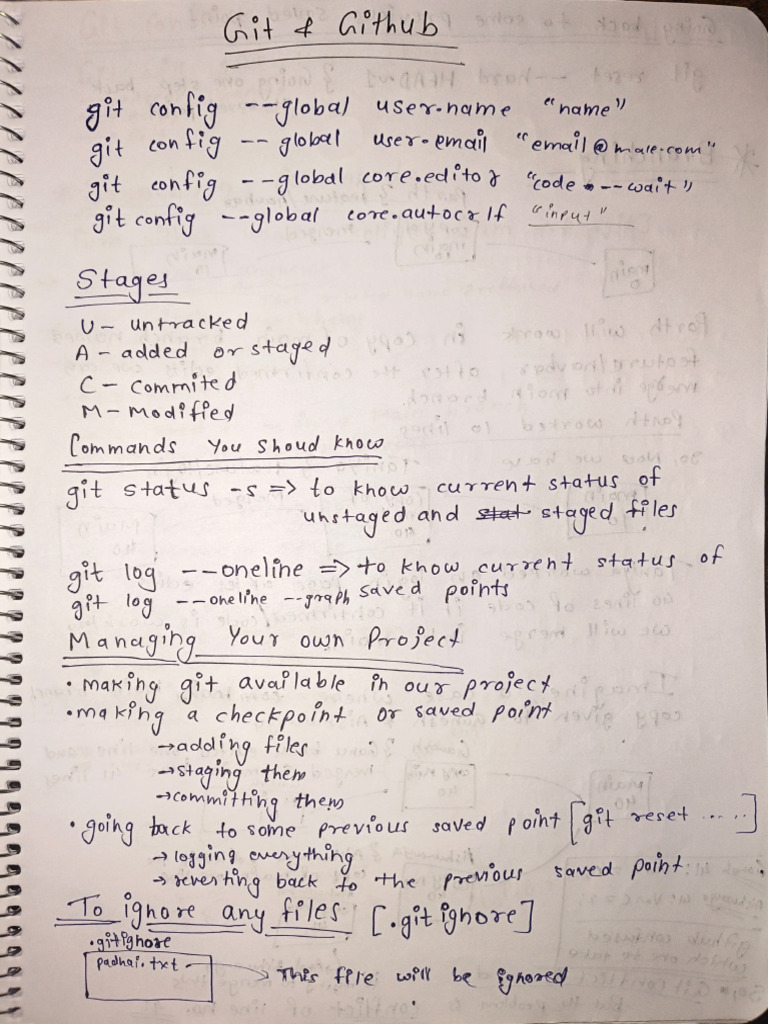 Git & Github
git config --global user.name "name"
git config -- global user.email "email@male.com"
git config --global core.editor "code --wait"
git config --global core.autocrlf "input"
Stages
U - untracked
A - added or staged
C - Commited
M - Modified
Commands You Shoud know
git status -s => to know current status of
unstaged and staged files
git log --oneline => to know current status of
git log --oneline --graph saved points
Managing Your own Project
• making git available in our project
• making a checkpoint or saved point
→ adding files
→ staging them
→ committing them
• going back to some previous saved point [git reset .....]
→ logging everything
→ reverting back to the previous saved point.
To ignore any files [.gitignore]
.gitignore
padhai.txt → This file will be ignored